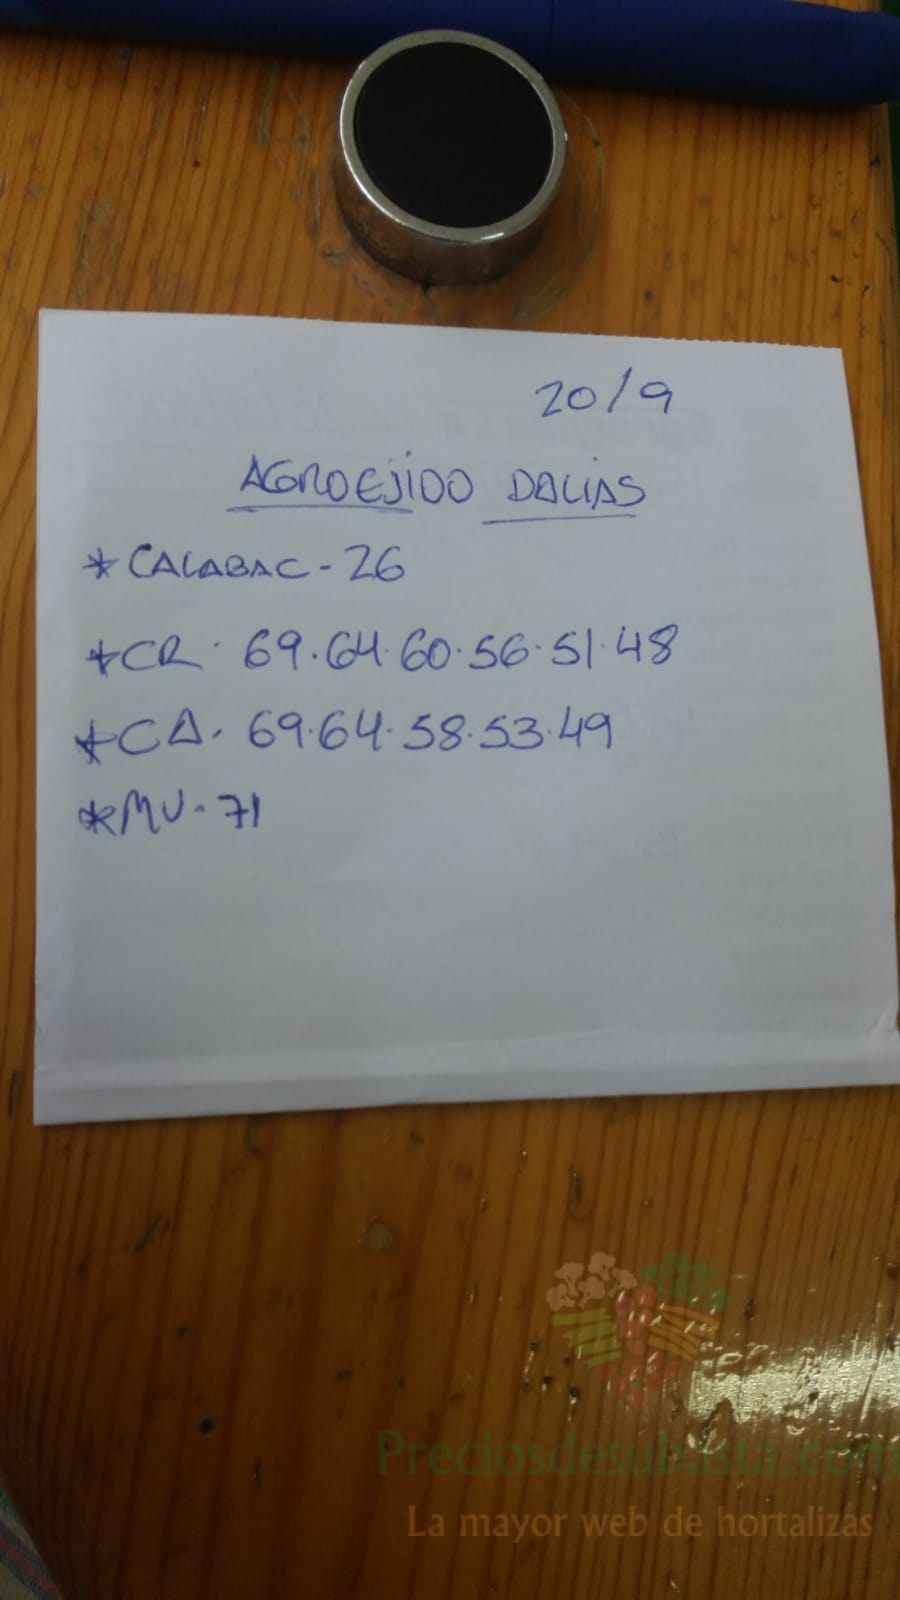 20/9
AGROEJIDO DALIAS
*CALABAC-26
*CR. 69.64.60.56.51.48
*CA. 69.64.58.53.49
*MU-71
Preciosdesubasta.com
La mayor web de hortalizas